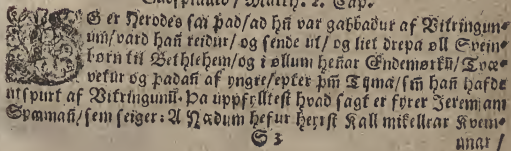 Guðspiallið / Matth. 2. Cap.
OG er Herodes sai það / að hn̄ var gabbaður af Vitringun⸗
um / varð han̄ reiður / og sende ut / og liet drepa øll Svein⸗
børn til Bethlehem / og i øllum hen̄ar Endemørkū / Tvæ⸗
vetur og þaðan̄ af yngre / epter þm̄ Tijma / sm̄ han̄ hafde
utspurt af Vitringunū. Þa uppfylltest hvað sagt er fyrer Jeremiam
Spæman̄ / sem seiger: A Hædum hefur heyrst Kall mikellrar Kvein⸗
S 3 unar /